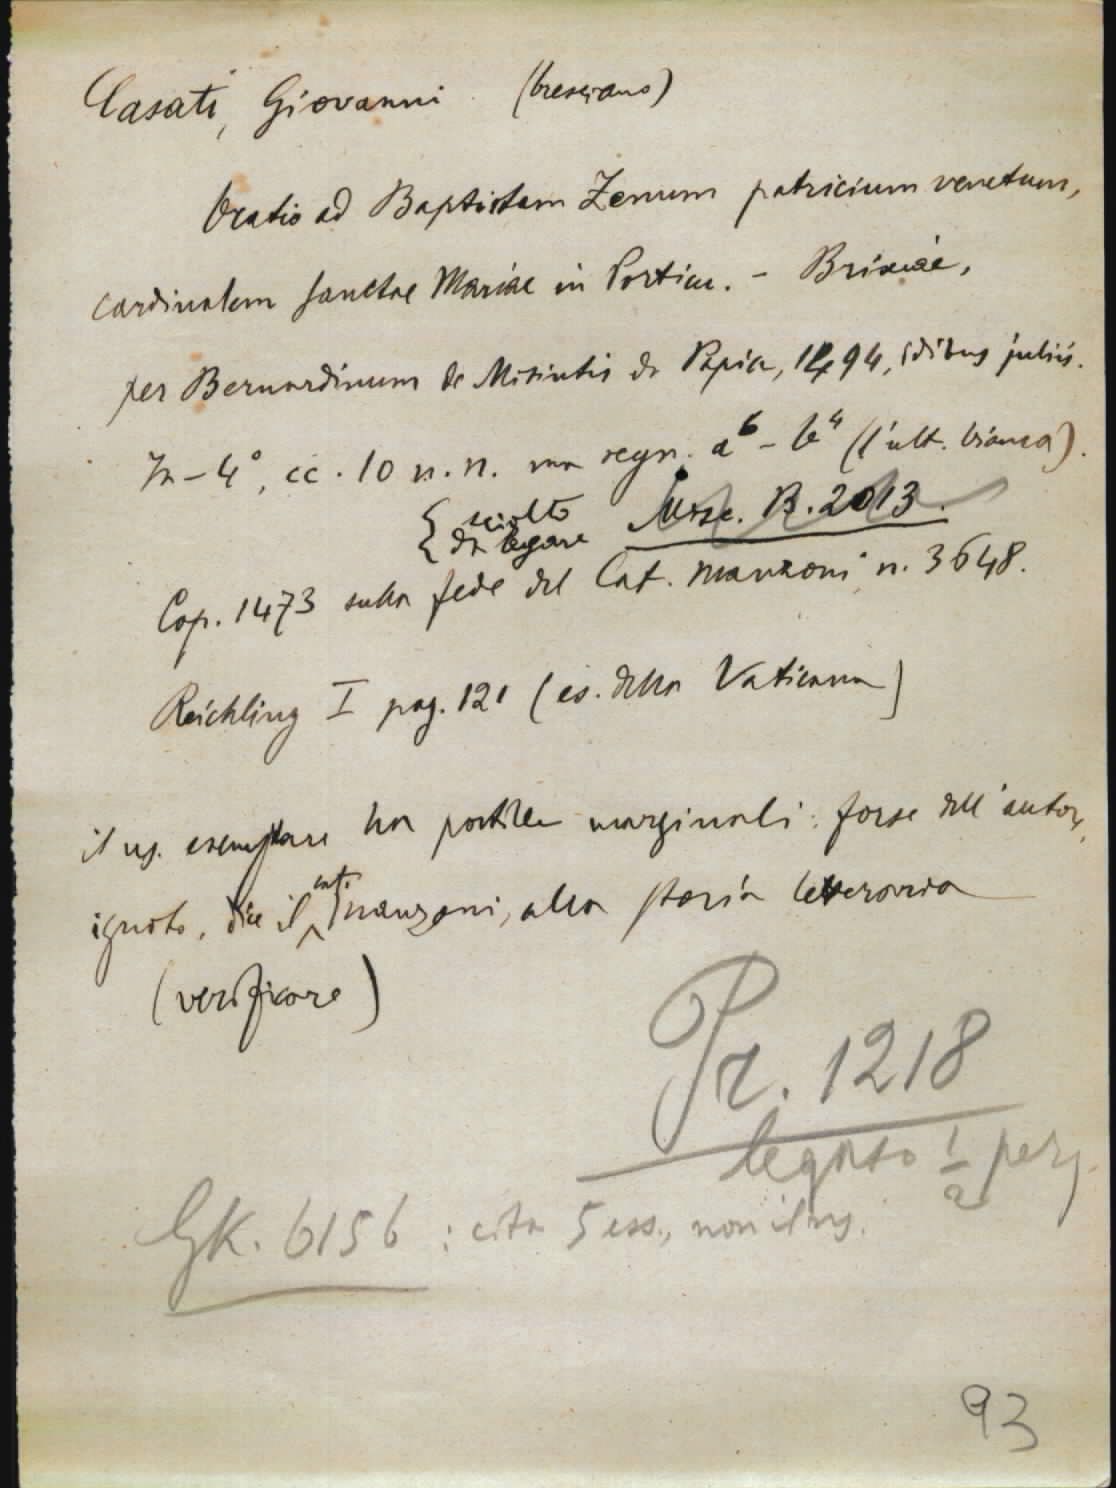 Casati, Giovanni (bresciano)
Oratio ad Baptistam Zenum patricium venetum,
cardinalem sanctae Mariae in Porticu. - Brixiae,
per Bernardinum de Misintis de Papia, 1494, idibus juliis.
In-4°, cc. 10 n.n. ma segn. a⁶ - b⁴ (l'ult. bianca).
{ sciolto
{ da legare Misc. B. 2013.
Cop. 1473 sulla fede del Cat. Manzoni n. 3648.
Reichling I pag. 121 (es. della Vaticana)
il ns. esemplare ha postille marginali: forse dell'autore,
ignoto, dice il cat. Manzoni, alla storia letteraria
(verificare)
Pr. 1218
legato 1/2 perg.
GK. 6156 : cita 5 ess., non il ns.
93